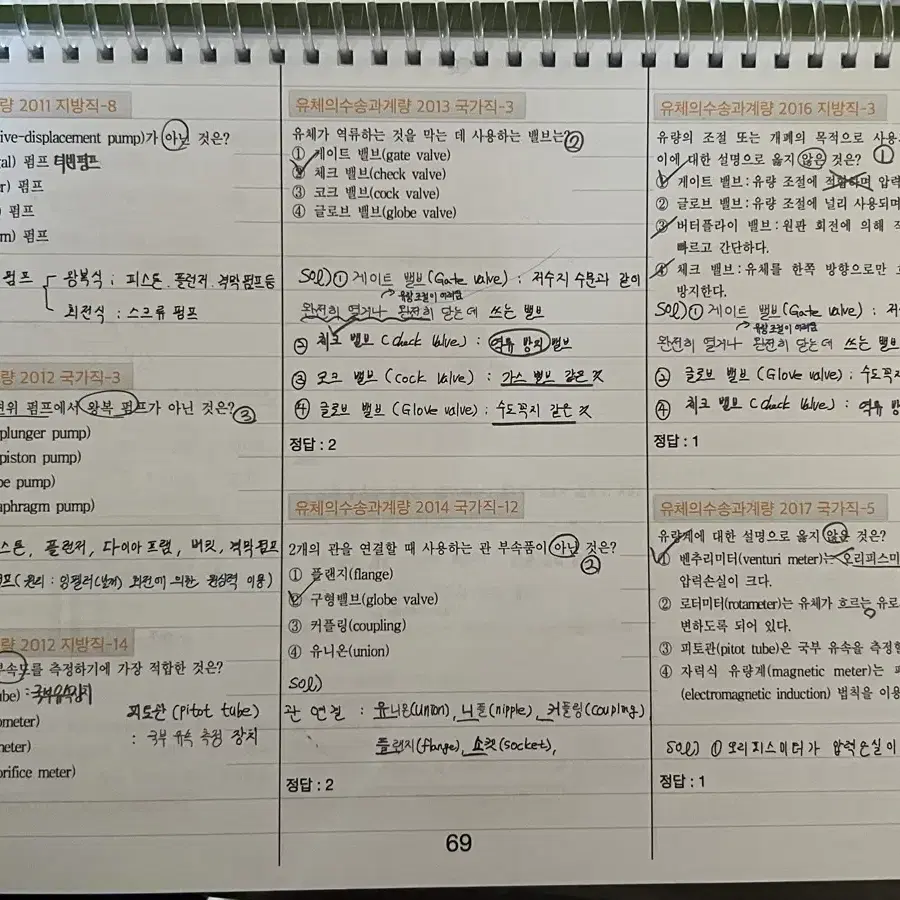 량 2011 지방직-8
ive-displacement pump)가 아닌 것은?
gal) 펌프 터빈펌프
r) 펌프
) 펌프
m) 펌프
펌프 왕복식 : 피스톤, 플런저, 격막펌프등
회전식 : 스크류 펌프
량 2012 국가직-3
변위 펌프에서 왕복 펌프가 아닌 것은? ③
plunger pump)
piston pump)
be pump)
aphragm pump)
스톤, 플런저, 다이아프램, 버킷, 격막펌프
펌프(원리 : 임펠러(날개) 회전에 의한 원심력 이용)
량 2012 지방직-14
부속도를 측정하기에 가장 적합한 것은?
ube) : 국부유속장치
ometer)
meter)
orifice meter)
피토관 (pitot tube)
: 국부 유속 측정 장치
유체의수송과계량 2013 국가직-3
유체가 역류하는 것을 막는 데 사용하는 밸브는? ②
① 게이트 밸브(gate valve)
② 체크 밸브(check valve)
③ 코크 밸브(cock valve)
④ 글로브 밸브(globe valve)
sol) ① 게이트 밸브(Gate valve) : 저수지 수문과 같이
→ 유량조절이 어려움
완전히 열거나 완전히 닫는데 쓰는 밸브
② 체크 밸브 (check valve) : 역류 방지 밸브
③ 코크 밸브 (cock valve) : 가스 밸브 같은 것
④ 글로브 밸브 (Glove valve) : 수도꼭지 같은 것
정답 : 2
유체의수송과계량 2014 국가직-12
2개의 관을 연결할 때 사용하는 관 부속품이 아닌 것은? ②
① 플랜지(flange)
② 구형밸브(globe valve)
③ 커플링(coupling)
④ 유니온(union)
sol)
관 연결 : 유니온(union), 니플(nipple), 커플링(coupling)
플랜지(flange), 소켓(socket),
정답 : 2
유체의수송과계량 2016 지방직-3
유량의 조절 또는 개폐의 목적으로 사용
이에 대한 설명으로 옳지 않은 것은? ①
① 게이트 밸브 : 유량 조절에 적합하며 압력
② 글로브 밸브 : 유량 조절에 널리 사용되며
③ 버터플라이 밸브 : 원판 회전에 의해 작
빠르고 간단하다.
④ 체크 밸브 : 유체를 한쪽 방향으로만 흐
방지한다.
sol) ① 게이트 밸브(Gate valve) : 저수
→ 유량조절이 어려움
완전히 열거나 완전히 닫는데 쓰는 밸브
② 글로브 밸브 (Glove valve) : 수도꼭지
④ 체크 밸브 (check valve) : 역류 방
정답 : 1
유체의수송과계량 2017 국가직-5
유량계에 대한 설명으로 옳지 않은 것은?
① 벤추리미터(venturi meter)는 오리피스미
압력손실이 크다.
② 로터미터(rotameter)는 유체가 흐르는 유로
변하도록 되어 있다.
③ 피토관(pitot tube)은 국부 유속을 측정할
④ 자력식 유량계(magnetic meter)는 패
(electromagnetic induction) 법칙을 이용
sol) ① 오리피스미터가 압력손실이
정답 : 1
69